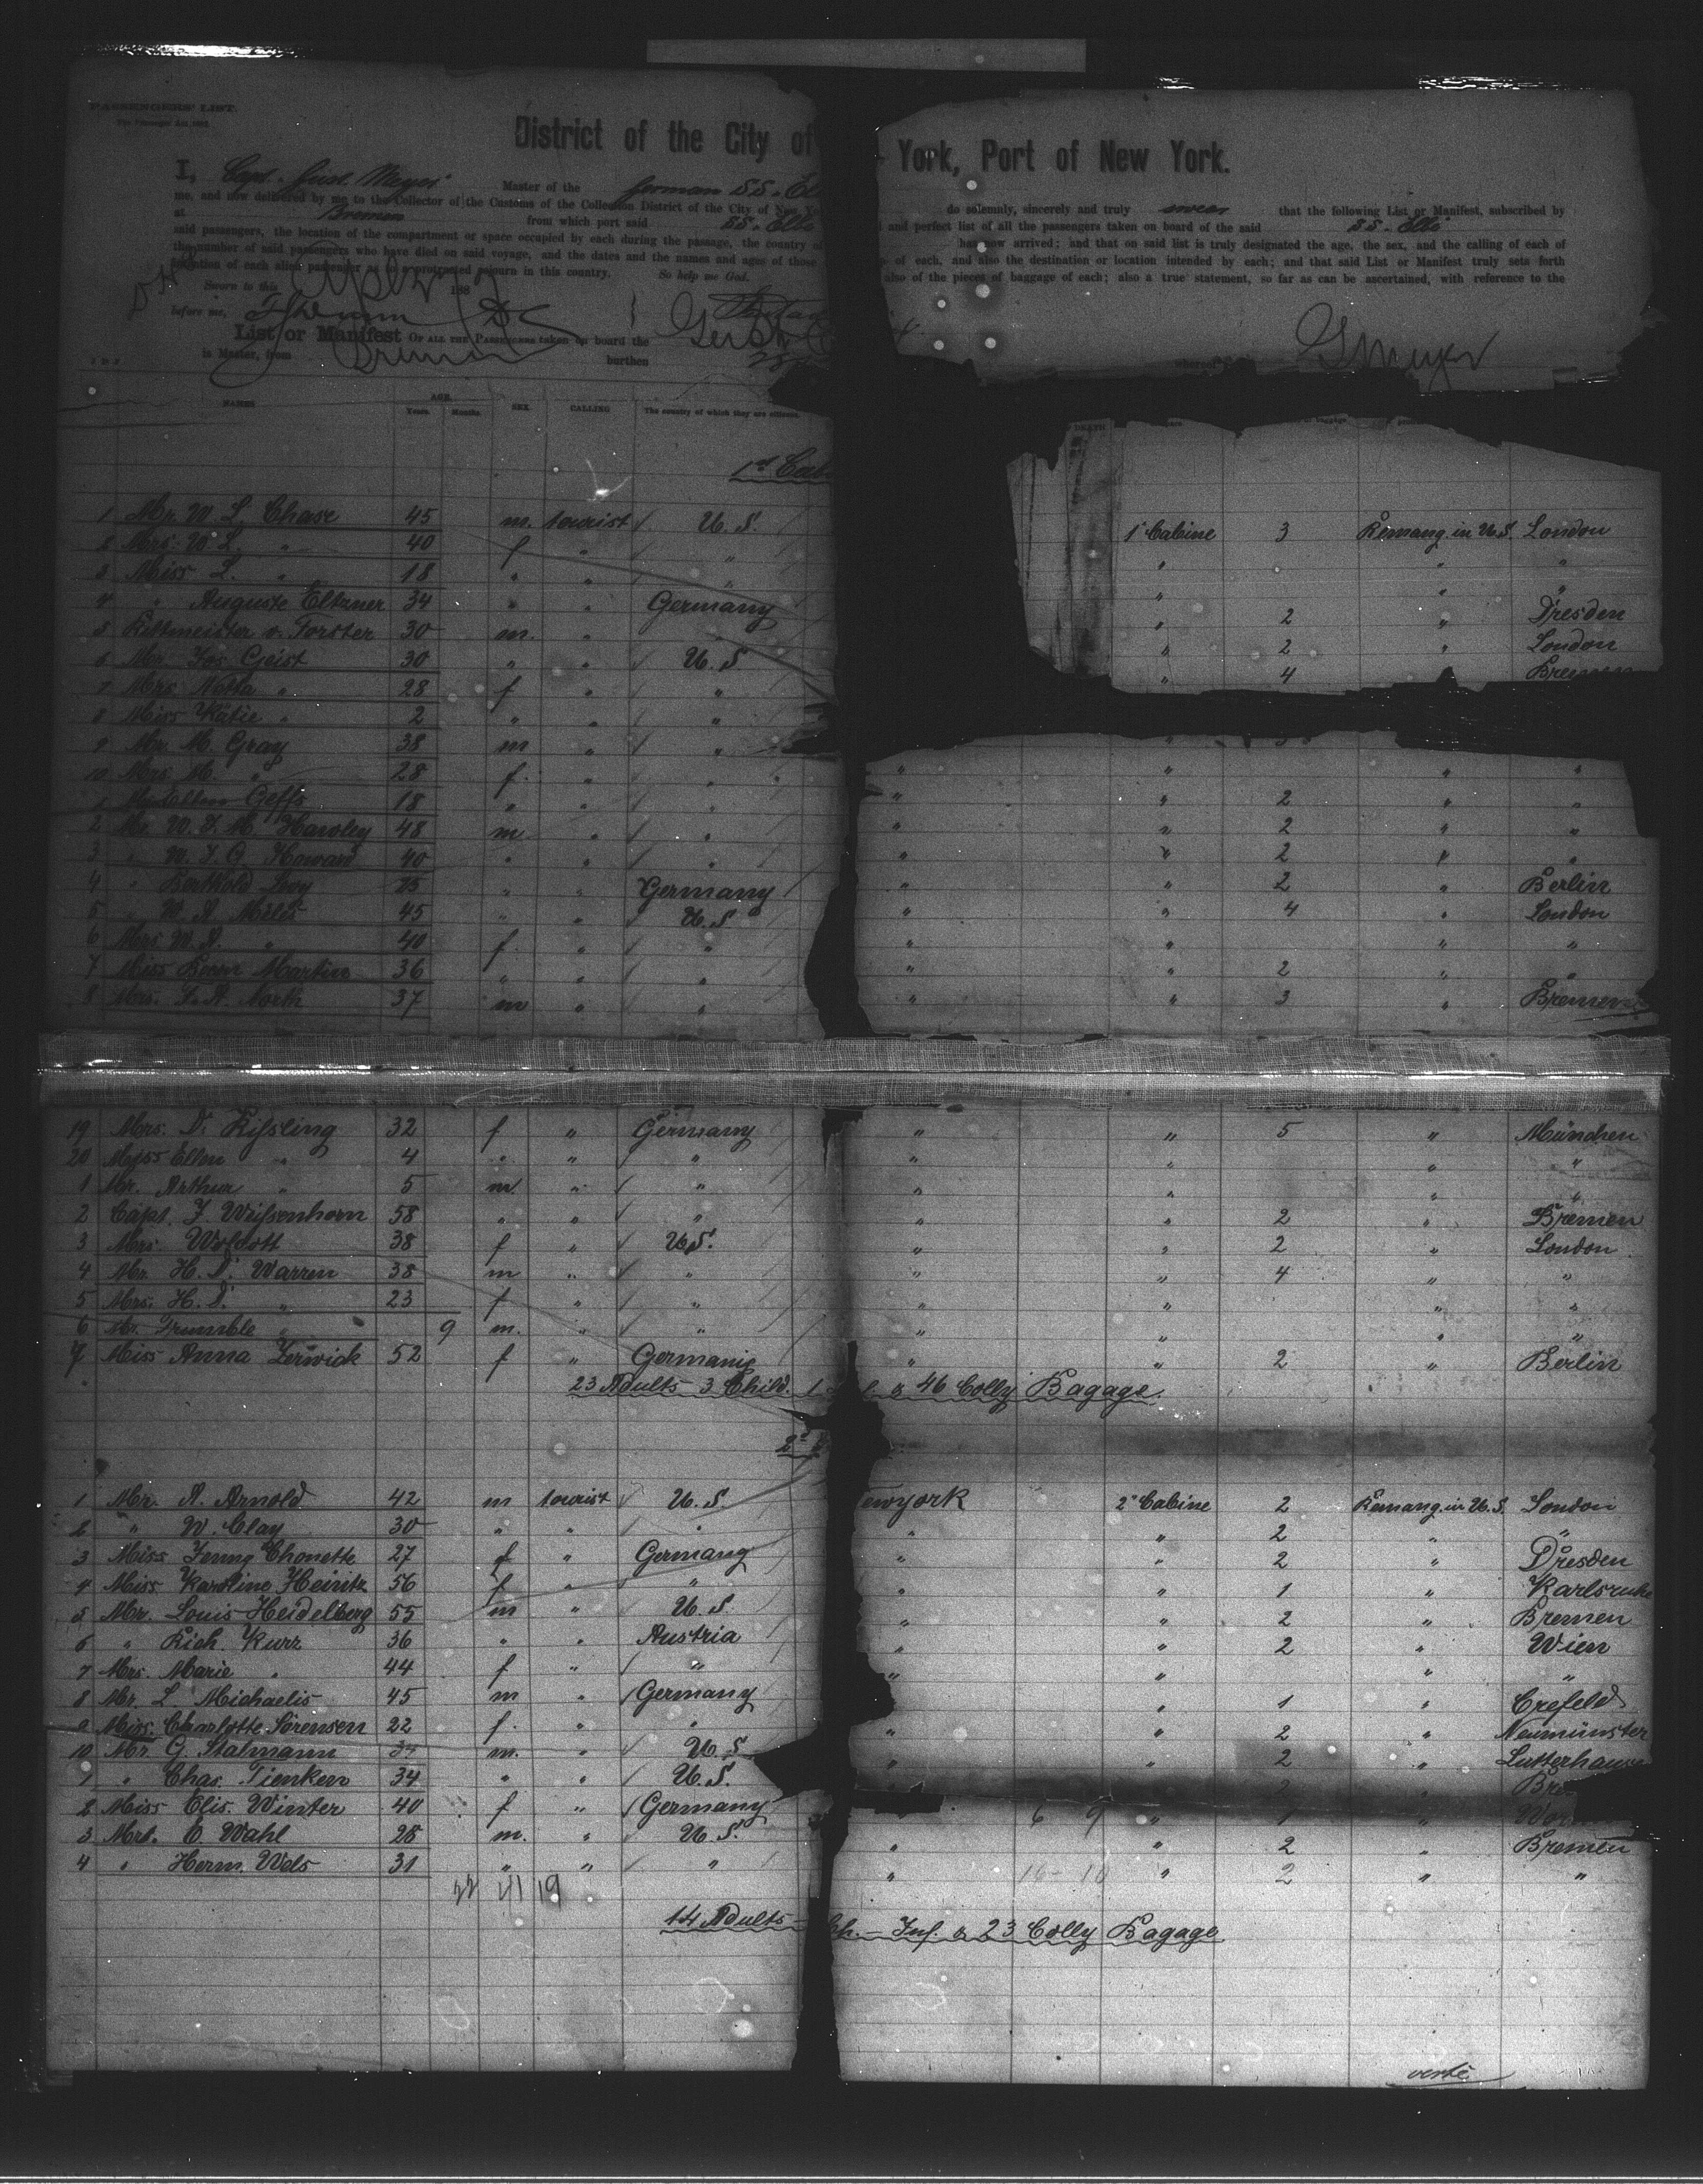 PASSENGERS' LIST.
District of the City of York, Port of New York.
I, Capt. Gust. Meyer Master of the German SS. do solemnly, sincerely and truly swear that the following List or Manifest, subscribed by
me, and now delivered by me to the Collector of the Customs of the Collection District of the City of and perfect list of all the passengers taken on board of the said SS. Elbe
at Bremen from which port said SS. Elbe has now arrived; and that on said list is truly designated the age, the sex, and the calling of each of
said passengers, the location of the compartment or space occupied by each during the passage, the country of each, and also the destination or location intended by each; and that said List or Manifest truly sets forth
the number of said passengers who have died on said voyage, and the dates and the names and ages of those also of the pieces of baggage of each; also a true statement, so far as can be ascertained, with reference to the
intention of each alien passenger as to a protracted sojourn in this country. So help me God.
Sworn to this 188
before me,
List or Manifest OF ALL THE PASSENGERS taken on board the
is Master, from Bremen burthen GMeyer
NAMES AGE Years. Months. SEX CALLING The country of which they are citizens.
1st
1 Mr. W. L. Chase 45 m. tourist U. S. 1" Cabine 3 Remang. in U.S. London
2 Mrs. W L. " 40 f " " " " "
3 Miss L. " 18 " " " " " "
4 " Auguste Eltzner 34 " " Germany " 2 " Dresden
5 Rittmeister v. Forster 30 m. " " " 2 " London
6 Mr. Jos. Geist 30 " " U. S " 4 " Bremen
7 Mrs. Netta " 28 f " "
8 Miss Kätie " 2 " " "
9 Mr. M. Gray 38 m " "
10 Mrs. M. " 28 f. " " " " " "
1 Geffs 18 " " " " " 2 " "
2 Mr. W. J. M. Hawley 48 m " " " " 2 " "
3 " W. J. G. Howard 40 " " " " " 2 " "
4 " Berthold Levy 25 " " Germany " " 2 " Berlin
5 " W. A. Miles 45 " " U. S " " 4 " London
6 Mrs. W. A. " 40 f. " " " " " "
7 Miss Martin 36 " " " " " 2 " "
8 Mrs. F. A. North 37 m " " " " 3 " Bremen
19 Mrs. D. Kißling 32 f " Germany " " 5 " München
20 Miss Ellen " 4 " " " " " " "
1 Mr. Arthur " 5 m " " " " " "
2 Capt. F Weißenhorn 58 " " " " " 2 " Bremen
3 Mrs. Wolcott 38 f " U.S. " " 2 " London
4 Mr. H. D. Warren 38 m " " " " 4 " "
5 Mrs. H. D. " 23 f " " " " " "
6 Mr. Trumble " 9 m. " " " " " "
7 Miss Anna Zerwick 52 f " Germanie " " 2 " Berlin
23 Adults 3 Child. 1 & 46 Colly Bagage.
1 Mr. A. Arnold 42 m tourist U. S. ewyork 2" Cabine 2 Remang. in U. S. London
2 " W. Clay 30 " " " " " 2 " "
3 Miss Jenny Chonette 27 f " Germany " " 2 " Dresden
4 Miss Karoline Heinitz 56 f " " " " 1 " Karlsruhe
5 Mr. Louis Heidelberg 55 m " U. S " " 2 " Bremen
6 " Rich. Kurz 36 " " Austria " " 2 " Wien
7 Mrs. Marie " 44 f " " " " " "
8 Mr. L. Michaelis 45 m " Germany " 1 " Crefeld
9 Miss. Charlotte Sörensen 22 f. " " " " 2 " Neumünster
10 Mr. G. Stalmann 34 m. " U. S " " 2 "
1 " Chas. Tienken 34 " " U. S. " "
2 Miss Elis. Winter 40 f " Germany 6 9 " 1 "
3 Mrs. E. Wahl 28 m. " U. S. " " 2 " Bremen
4 " Herm. Wels 31 " " " " 16-10 " 2 " "
22 21 19
14 Adults Ch. - Inf. & 23 Colly Bagage
verte